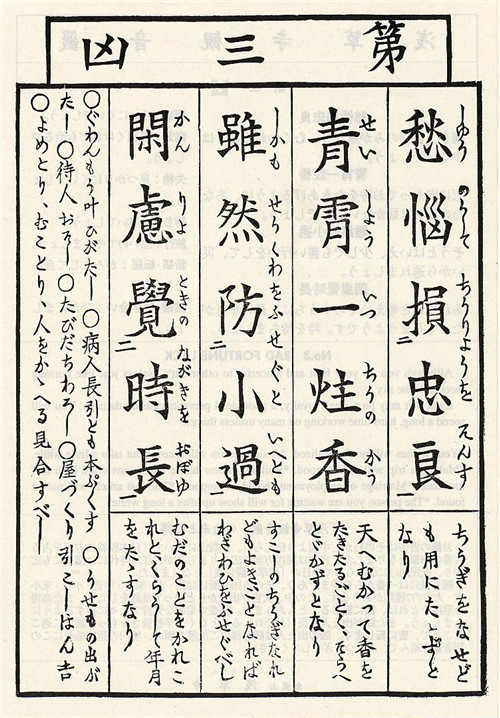 第三凶
愁惱損忠良
しゆうのうして ちうりようを そんす
ちうぎをなせど
も用にたゝずと
なり
青霄一炷香
せいしよう いつちうのかう
天へむかつて香を
たきたるごとく、たらへ
とゞかずとなり
雖然防小過
しかも せうくわをふせぐと いへども
すこしのちうぎなれ
どもよきことなれば
わざわひをふせぐべし
閑慮覺時長
かんりよ ときの ながきを おぼゆ
むだのことをかれこ
れと、くらうし 年月
をたゝすなり
〇ぐわんもう叶ひがたし 〇病人長引とも本ぷくす 〇うせもの出が
たし〇待人おそし〇たびだちわろし〇屋づくり引こし、はん吉
〇よめとり、むことり、人をかゝへる見合すべし
二
二
一
二
一